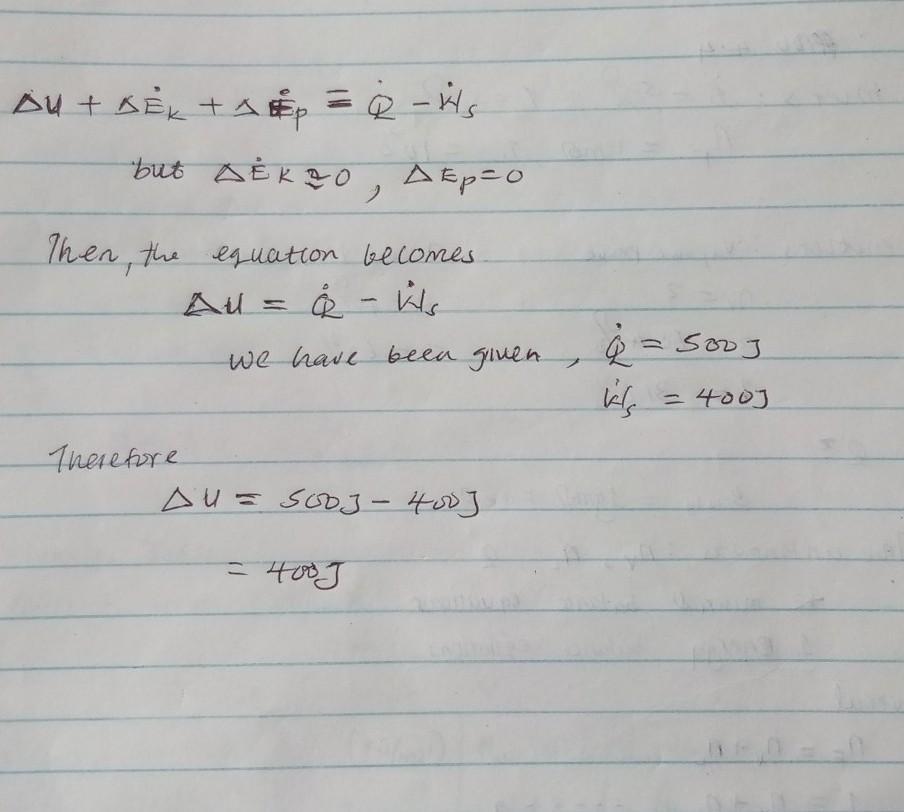 ΔU + ΔĖk + ΔĖp = Q̇ - Ẇs
but ΔĖk ≅ 0, ΔEp = 0
Then, the equation becomes
ΔU = Q̇ - Ẇs
we have been given, Q̇ = 500J
Ẇs = 400J
Therefore
ΔU = 500J - 400J
= 400J